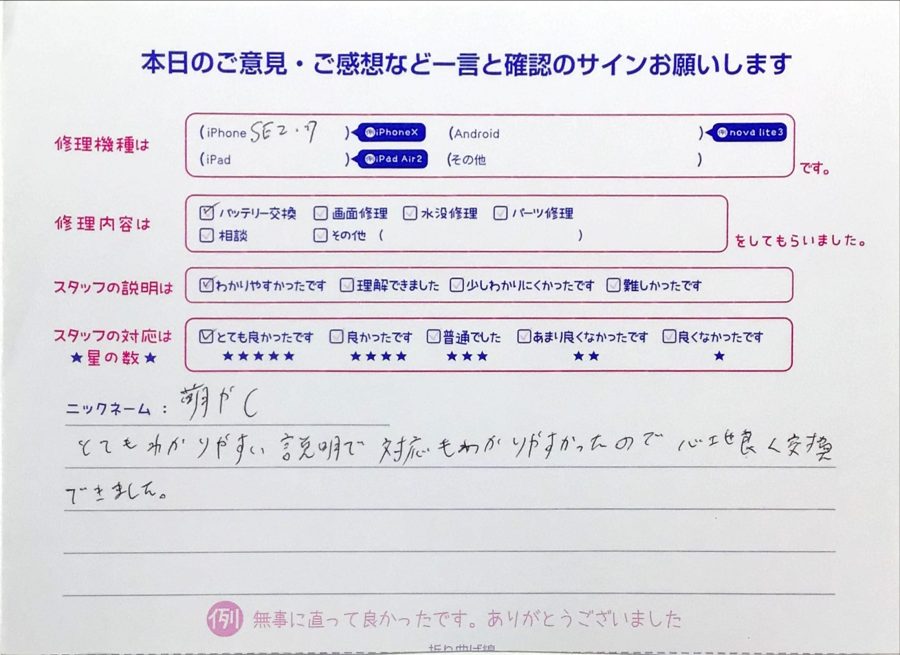 本日のご意見・ご感想など一言と確認のサインお願いします
修理機種は (iPhone SE2・7 ) 例iPhoneX (Android ) 例nova lite3
(iPad ) 例iPad Air2 (その他 ) です。
修理内容は ☑バッテリー交換 □画面修理 □水没修理 □パーツ修理
□相談 □その他 ( ) をしてもらいました。
スタッフの説明は ☑わかりやすかったです □理解できました □少しわかりにくかったです □難しかったです
スタッフの対応は ☑とても良かったです □良かったです □普通でした □あまり良くなかったです □良くなかったです
★星の数★ ★★★★★ ★★★★ ★★★ ★★ ★
ニックネーム：萌が
とてもわかりやすい説明で対応もわかりやすかったので心地良く交換
できました。
例 無事に直って良かったです。ありがとうございました
折り曲げ線